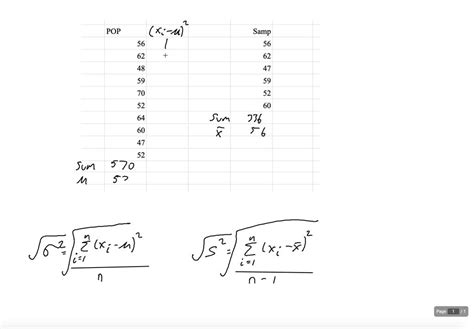 POP (xᵢ-μ)² Samp
56 1 56
62 + 62
48 47
59 59
70 52
52 60
64 Sum 336
60 x̄ 56
47
52
Sum 570
μ 57
√σ² = √ Σ (xᵢ-μ)² / n, i=1, n
√s² = √ Σ (xᵢ-x̄)² / n-1, i=1, n
Page 1 / 1